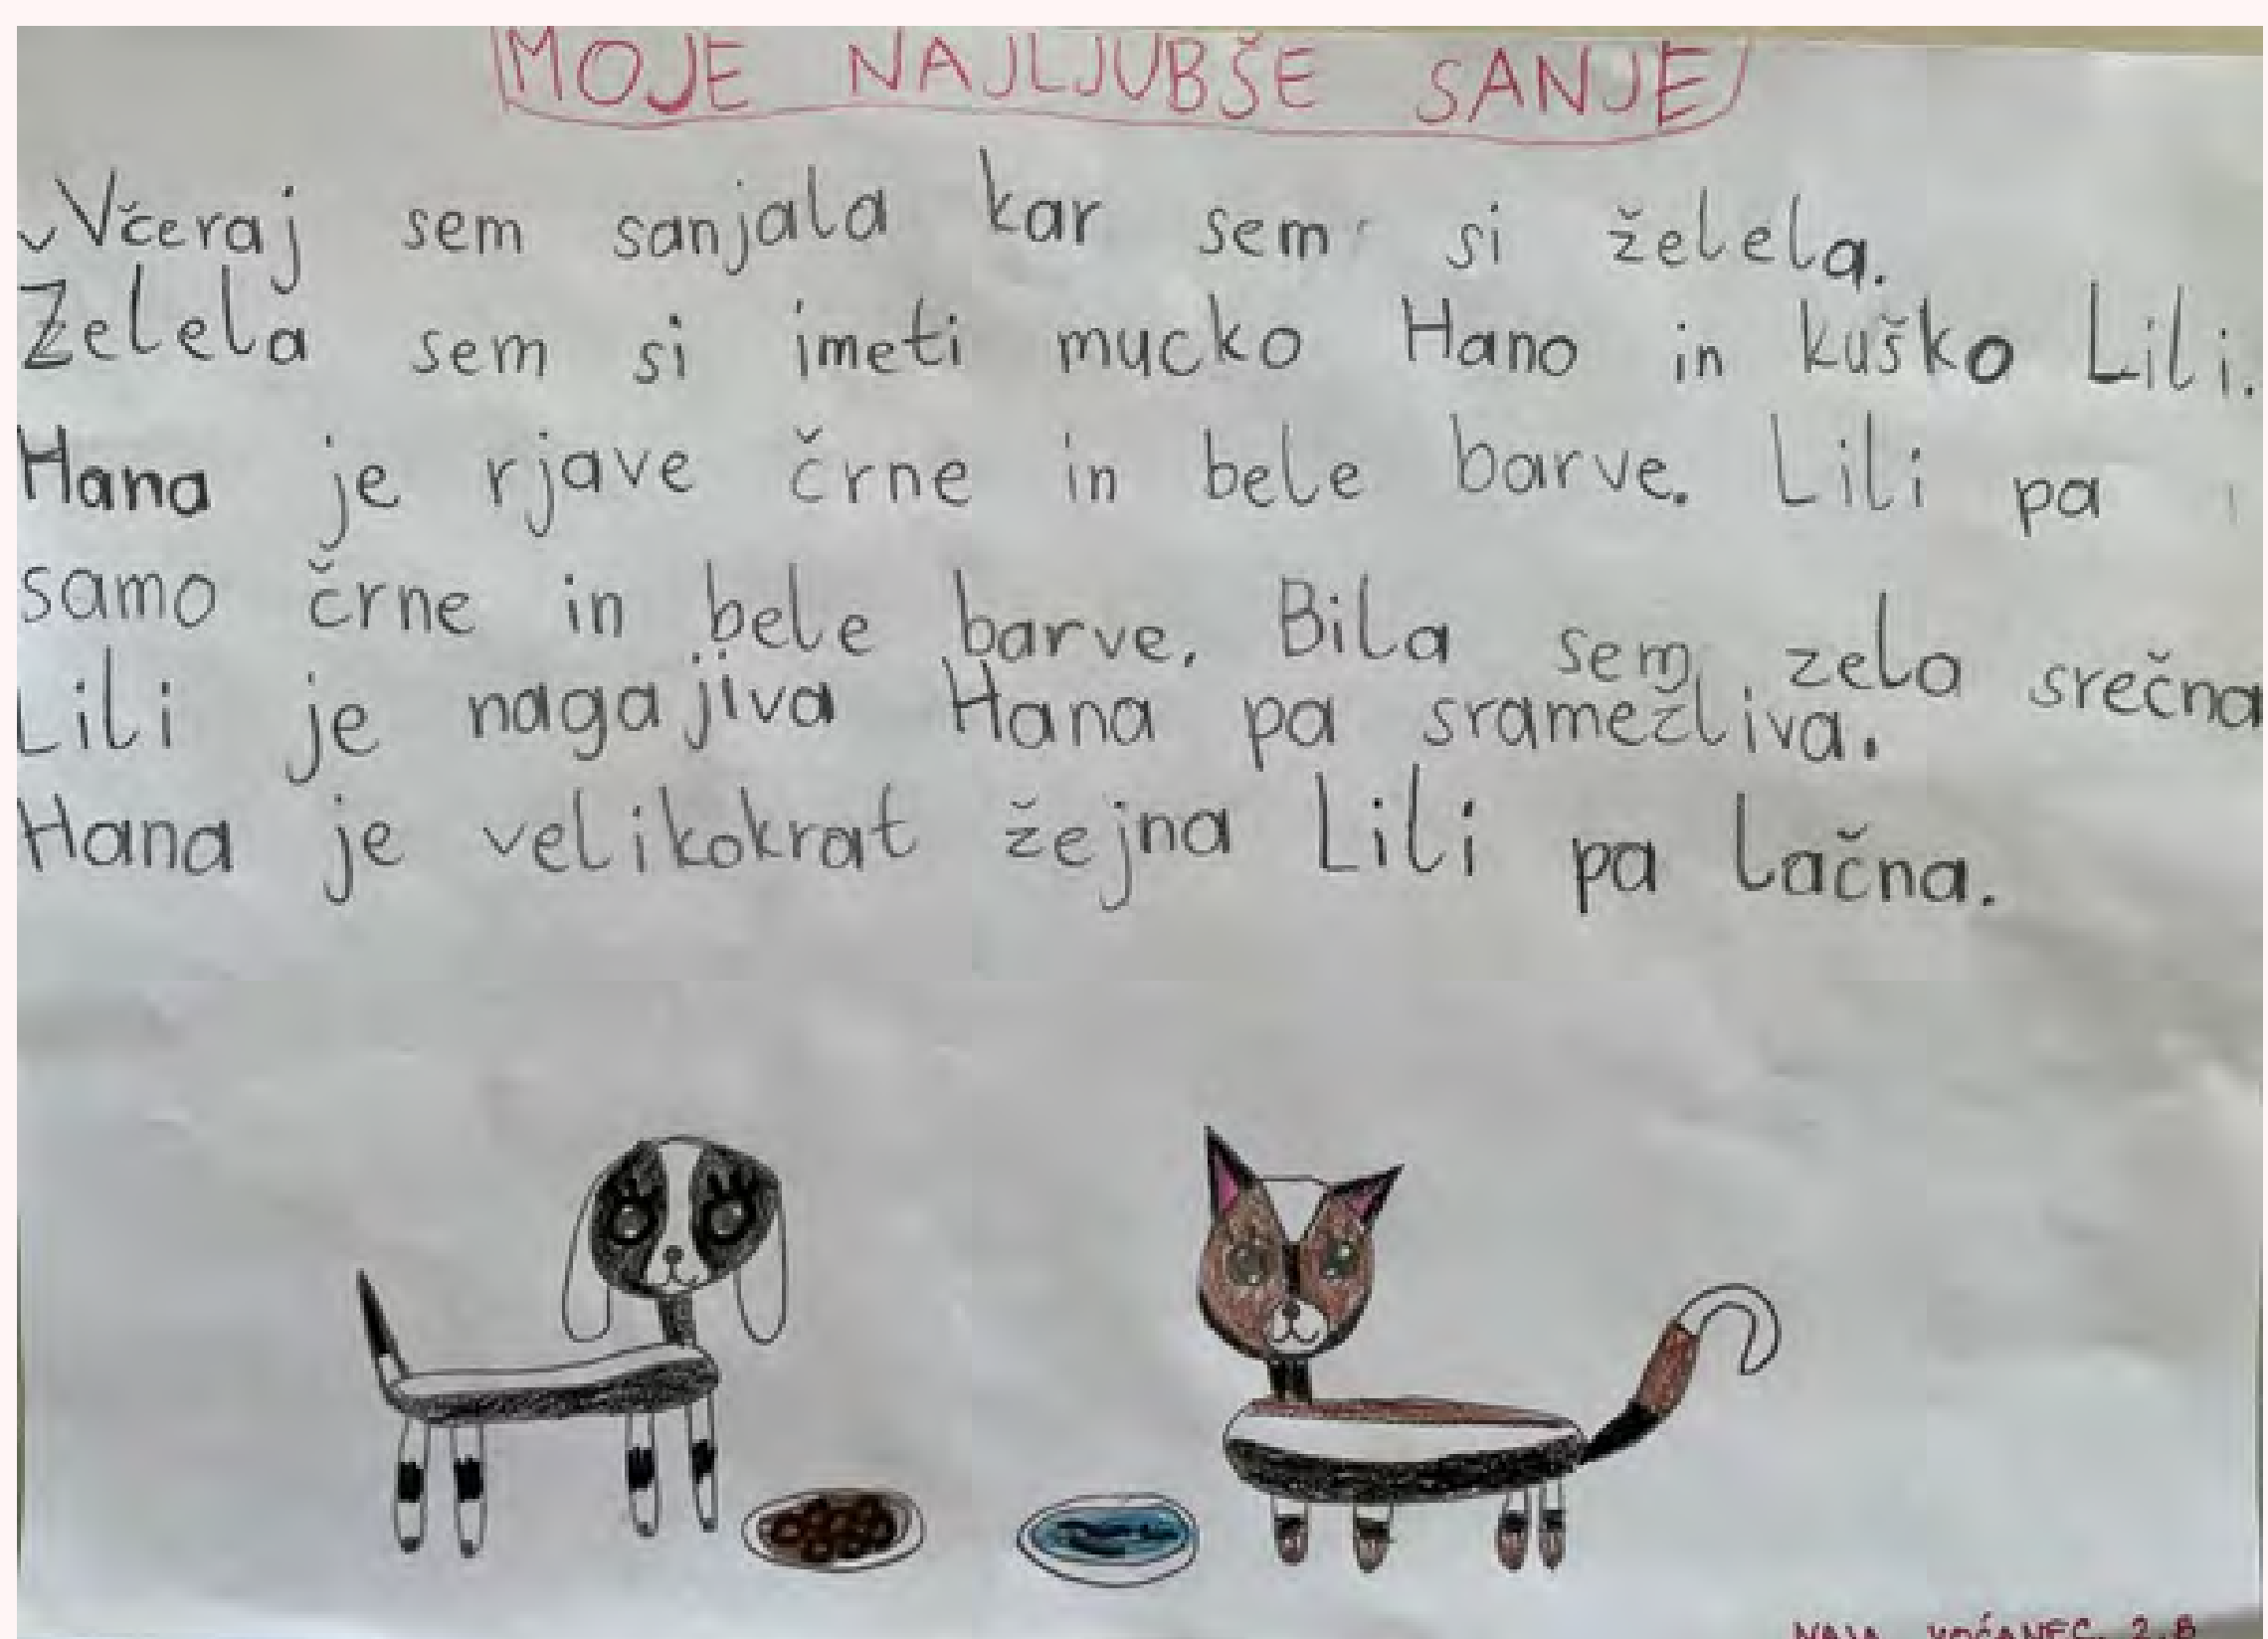 MOJE NAJLJUBŠE SANJE
Včeraj sem sanjala kar sem si želela.
Želela sem si imeti mucko Hano in kuško Lili.
Hana je rjave črne in bele barve. Lili pa
samo črne in bele barve. Bila sem zelo srečna
Lili je nagajiva Hana pa sramežliva.
Hana je velikokrat žejna Lili pa lačna.
2.B